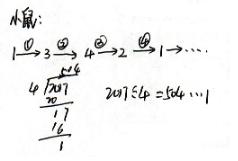 小鼠:
1 ① → 3 ② → 4 ③ → 2 ④ → 1 → ……
504
4 2017
20
17
16
1
2017÷4=504…1